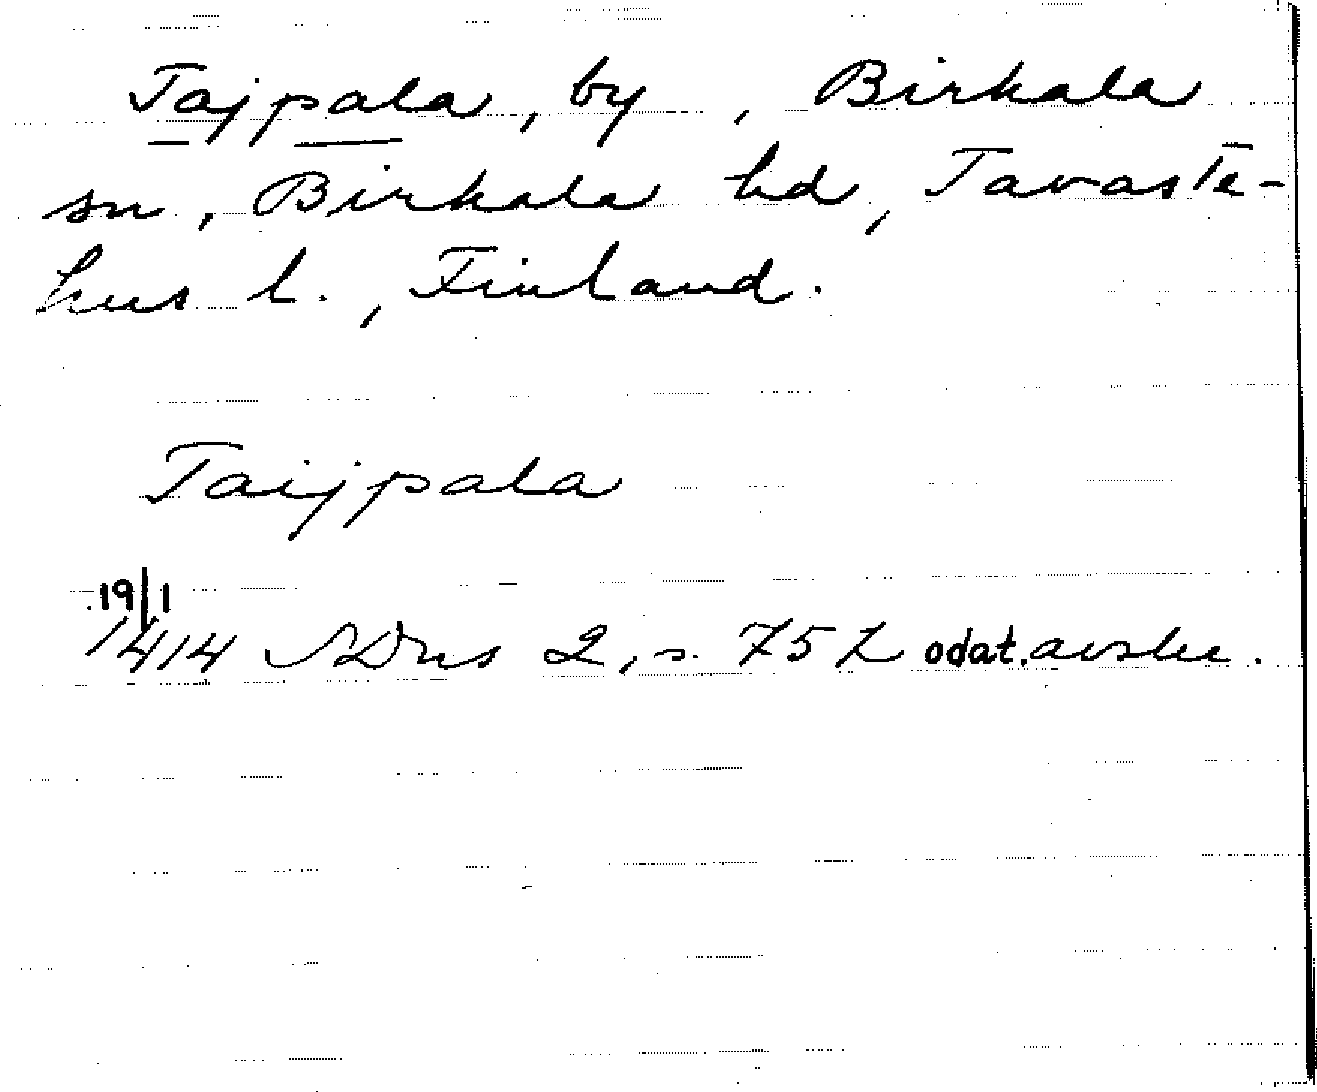 Tajpala, by, Birkala
sn, Birkala hd, Tavaste-
hus l., Finland.
Taijpala
19/1
1414 SDns 2, s. 757 odat. avskr.